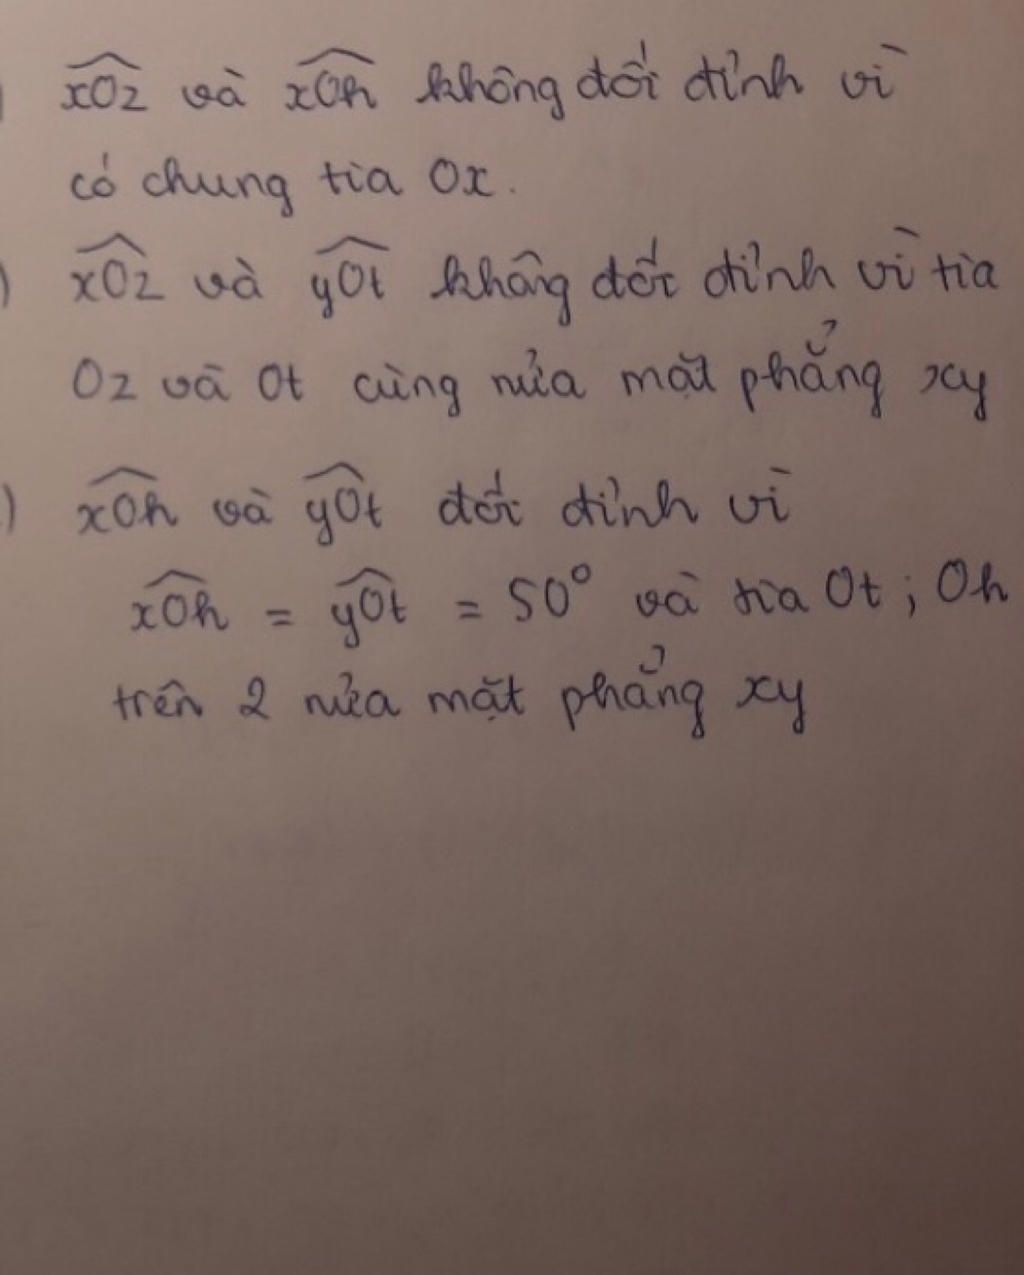 ) $\widehat{xOz}$ và $\widehat{xOh}$ không đối đỉnh vì
có chung tia Ox.
) $\widehat{xOz}$ và $\widehat{yOt}$ không đối đỉnh vì tia
Oz và Ot cùng nửa mặt phẳng xy
.) $\widehat{xOh}$ và $\widehat{yOt}$ đối đỉnh vì
$\widehat{xOh}$ = $\widehat{yOt}$ = 50° và tia Ot ; Oh
trên 2 nửa mặt phẳng xy